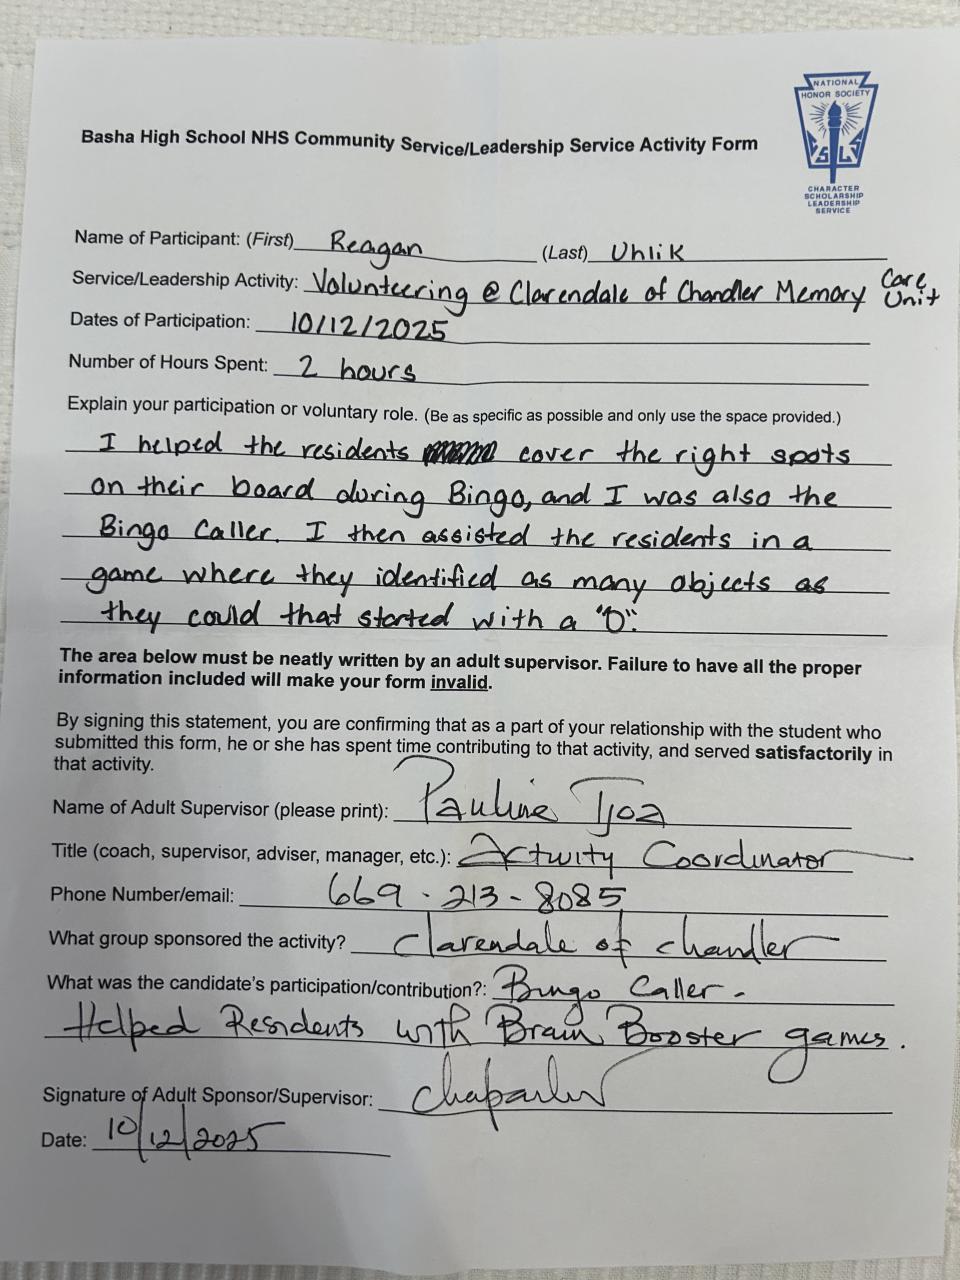 NATIONAL
HONOR SOCIETY
S L S
CHARACTER
SCHOLARSHIP
LEADERSHIP
SERVICE
Basha High School NHS Community Service/Leadership Service Activity Form
Name of Participant: (First) Reagan (Last) Uhlik
Service/Leadership Activity: Volunteering @ Clarendale of Chandler Memory Care Unit
Dates of Participation: 10/12/2025
Number of Hours Spent: 2 hours
Explain your participation or voluntary role. (Be as specific as possible and only use the space provided.)
I helped the residents cover the right spots
on their board during Bingo, and I was also the
Bingo Caller. I then assisted the residents in a
game where they identified as many objects as
they could that started with a "O".
The area below must be neatly written by an adult supervisor. Failure to have all the proper
information included will make your form invalid.
By signing this statement, you are confirming that as a part of your relationship with the student who
submitted this form, he or she has spent time contributing to that activity, and served satisfactorily in
that activity.
Name of Adult Supervisor (please print): Pauline Tjoa
Title (coach, supervisor, adviser, manager, etc.): Activity Coordinator
Phone Number/email: 669-213-8085
What group sponsored the activity? Clarendale of Chandler
What was the candidate's participation/contribution?: Bingo Caller -
Helped Residents with Brain Booster games.
Signature of Adult Sponsor/Supervisor:
Date: 10/12/2025